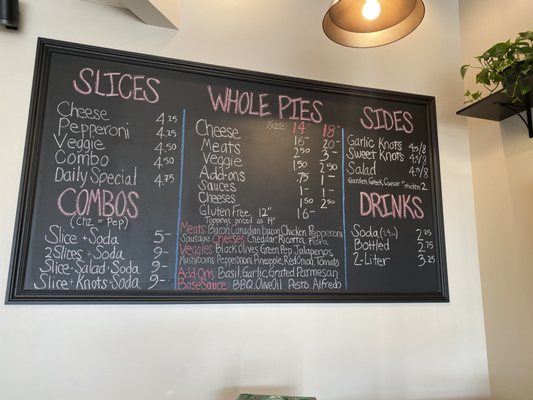 SLICES
Cheese 4.25
Pepperoni 4.25
Veggie 4.50
Combo 4.50
Daily Special 4.75
COMBOS
(Chz or Pep)
Slice + Soda 5-
2 Slices + Soda 9-
Slice + Salad + Soda 9-
Slice + Knots + Soda 9-
WHOLE PIES
Size 14" 18"
Cheese 16- 20-
Meats 2.50 3-
Veggie 1.50 2.50
Add-ons .75 1-
Sauces 1- 1-
Cheeses 1.50 2.50
Gluten Free 12" 16-
Toppings priced as 14"
Meats: Bacon, Canadian bacon, Chicken, Pepperoni
Sausage Cheeses: Cheddar, Ricotta, Feta
Veggies: Black Olives, Green Pep, Jalapenos
Mushrooms, Pepperoncini, Pineapple, Red Onion, Tomato
Add-Ons: Basil, Garlic, Grated Parmesan
Base Sauce: BBQ, Olive Oil Pesto, Alfredo
SIDES
Garlic Knots 4.5/8
Sweet Knots 4.5/8
Salad 4/8
Garden, Greek, Caesar + chicken 2
DRINKS
Soda 2.25
Bottled 2.75
2-Liter 3.25